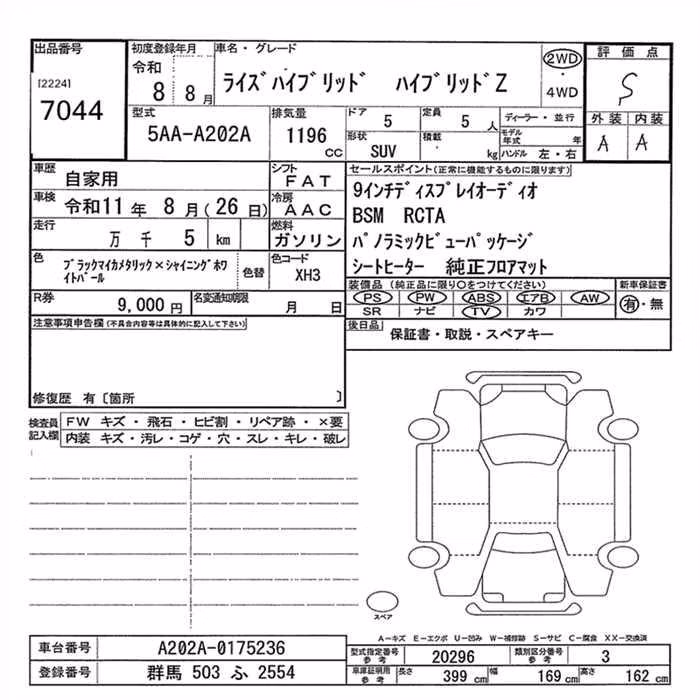 出品番号
[2224]
7044
初度登録年月
令和
8 8月
車名・グレード
ライズハイブリッド ハイブリッドZ
2WD
・
4WD
評価点
S
外装 内装
A A
型式
5AA-A202A
排気量
1196
CC
ドア
5
定員
5 人
形状
SUV
積載
kg
ディーラー・並行
モデル年式 年
ハンドル 左・右
車歴
自家用
シフト
FAT
車検
令和11年 8月(26日)
冷房
AAC
走行
万 千 5 km
燃料
ガソリン
色
ブラックマイカメタリック×シャイニングホワイトパール
色替
色コード
XH3
セールスポイント(正常に機能するものに限ります)
9インチディスプレイオーディオ
BSM RCTA
パノラミックビューパッケージ
シートヒーター 純正フロアマット
装備品 (純正品に限り○をつけてください)
PS PW ABS エアB AW
SR ナビ TV カワ
新車保証書
有・無
R券
9,000円
名変通知期限
月 日
後日品
保証書・取説・スペアキー
注意事項申告欄(不具合内容等は具体的に記入して下さい)
修復歴 有〔箇所 〕
検査員
記入欄
FW キズ・飛石・ヒビ割・リペア跡・×要
内装 キズ・汚レ・コゲ・穴・スレ・キレ・破レ
スペア
A-キズ E-エクボ U-凹み W-補修跡 S-サビ C-腐食 XX-交換済
車台番号
A202A-0175236
登録番号
群馬 503 ふ 2554
型式指定番号
参考
20296
類別区分番号
参考
3
車庫証明用
参考
長さ
399 cm
幅
169 cm
高さ
162 cm